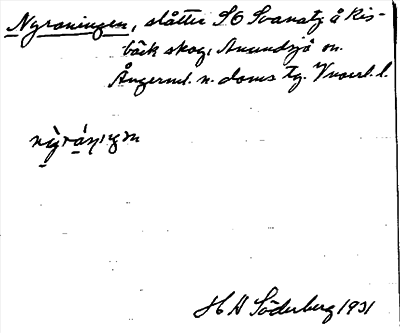 Nyraningen, slåtter SO Svanatj å Ris-
bäck skog, Anundsjö sn.
Ångerml. n. doms tg. Vnorrl. l.
H A Söderberg 1931